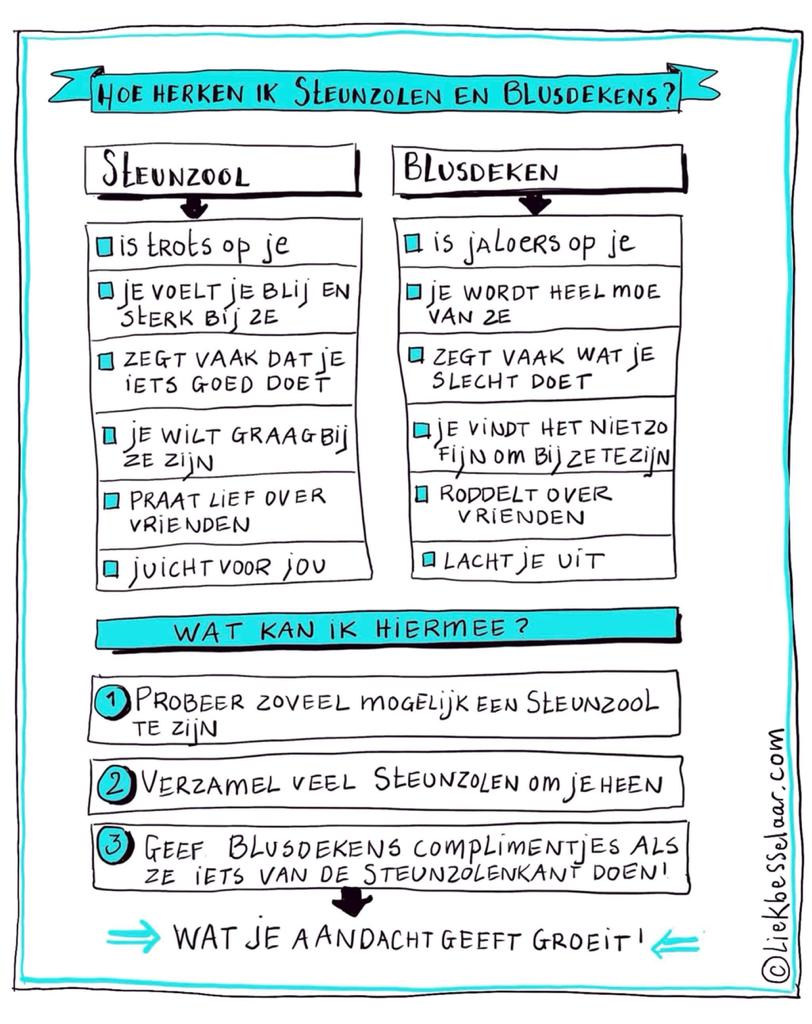 HOE HERKEN IK STEUNZOLEN EN BLUSDEKENS?
STEUNZOOL
is trots op je
JE VOELT JE BLIJ EN
STERK BIJ ZE
ZEGT VAAK DAT JE
IETS GOED DOET
JE WILT GRAAG BIJ
ZE ZIJN
PRAAT LIEF OVER
VRIENDEN
JUICHT VOOR JOU
BLUSDEKEN
is jaloers op je
JE WORDT HEEL MOE
VAN ZE
ZEGT VAAK WAT JE
SLECHT DOET
JE VINDT HET NIET ZO
FIJN OM BIJ ZE TE ZIJN
RODDELT OVER
VRIENDEN
LACHT JE UIT
WAT KAN IK HIERMEE?
1 PROBEER ZOVEEL MOGELIJK EEN STEUNZOOL
TE ZIJN
2 VERZAMEL VEEL STEUNZOLEN OM JE HEEN
3 GEEF BLUSDEKENS COMPLIMENTJES ALS
ZE IETS VAN DE STEUNZOLENKANT DOEN!
WAT JE AANDACHT GEEFT GROEIT!
©liekbesselaar.com